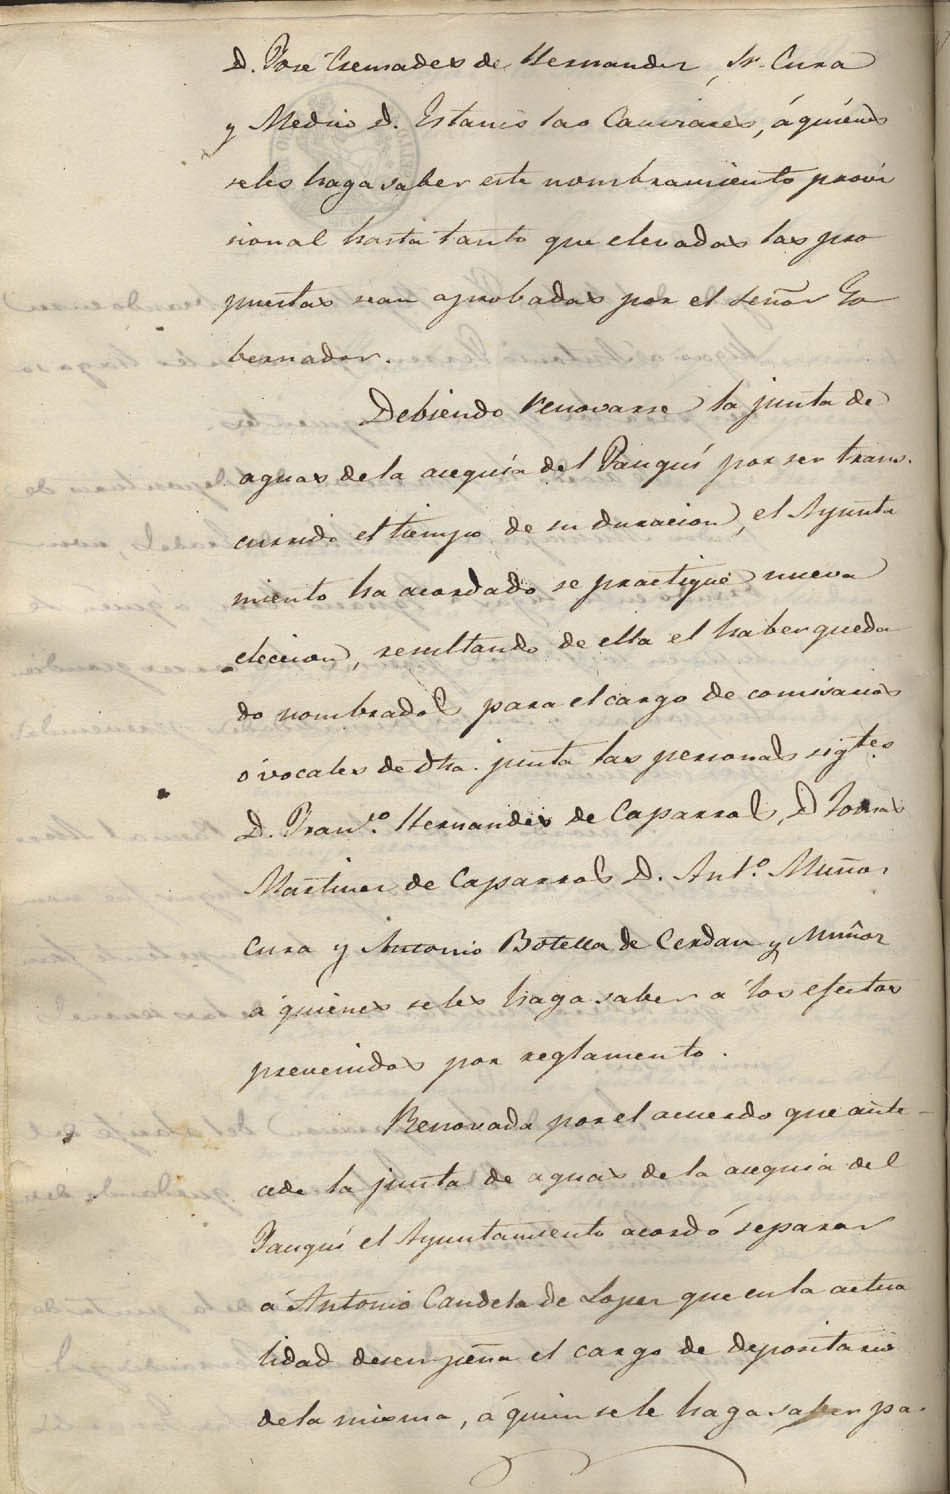 D. Jose Cremades de Hernandez, Sr. Cura
y Medico D. Estanislao Cañizares, á quiénes
seles haga saber este nombramiento provi
sional hasta tanto que elevadas las pro
puestas sean aprobadas por el Señor Go
bernador.
Debiendo renovarse la junta de
aguas de la acequia del Pauquí por ser trans-
currido el tiempo de su duracion, el Ayunta
miento ha acordado se practique nueva
eleccion, resultando de ella el haber queda
do nombrados para el cargo de comisarios
ó vocales de dha. junta las personas sigtes.
D. Franco. Hernandez de Caparros, D Tomas
Martinez de Caparros D. Anto. Muñoz
Cura y Antonio Botella de Cerdan y Muñoz
á quiénes seles haga saber a los efectos
prevenidos por reglamento.
Renovada por el acuerdo que ante-
cede la junta de aguas de la acequia del
Pauquí el Ayuntamiento acordó separar
á Antonio Candela de Lopez que en la actua
lidad desempeña el cargo de depositario
dela misma, á quien sele haga saber pa-